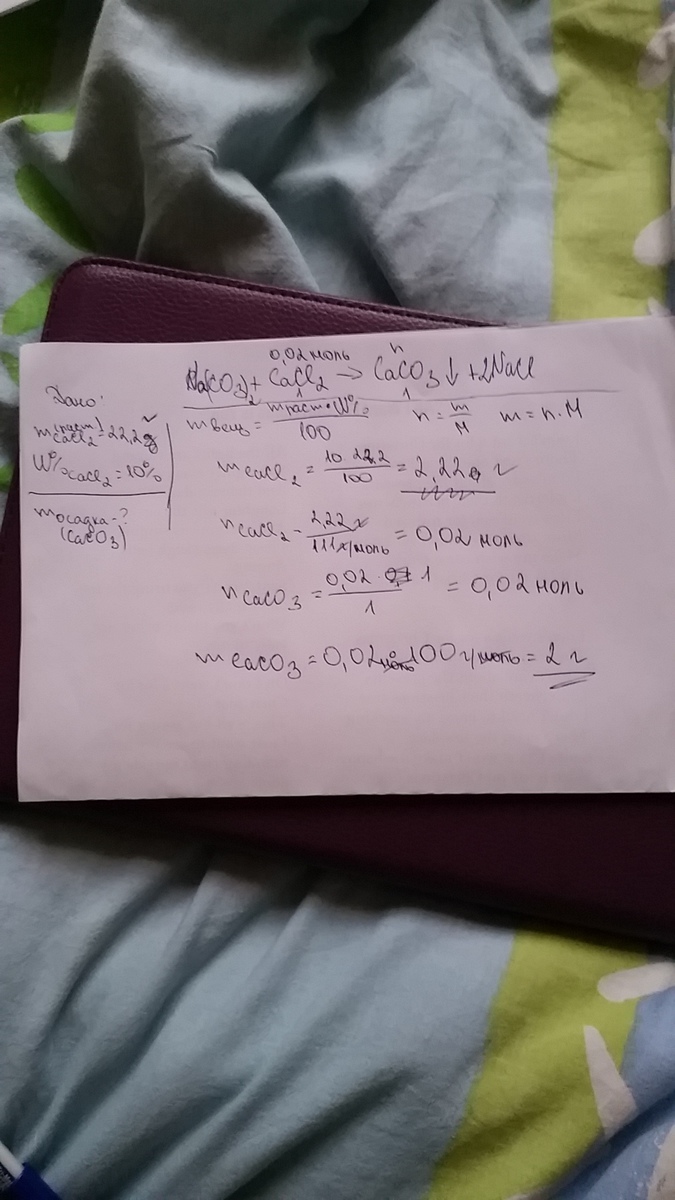 Дано:
m(раст)CaCl₂ = 22,2 г
W%CaCl₂ = 10%
mосадка - ?
(CaCO₃)
0,02 моль n
Na(CO₃)₂ + CaCl₂ → CaCO₃↓ + 2NaCl
1 1
mвещ = mраст·W% / 100 n = m/M m = n·M
mCaCl₂ = 10·22,2 / 100 = 2,22 г
nCaCl₂ = 2,22 г / 111 г/моль = 0,02 моль
nCaCO₃ = 0,02 · 1 / 1 = 0,02 моль
mCaCO₃ = 0,02 моль · 100 г/моль = 2 г